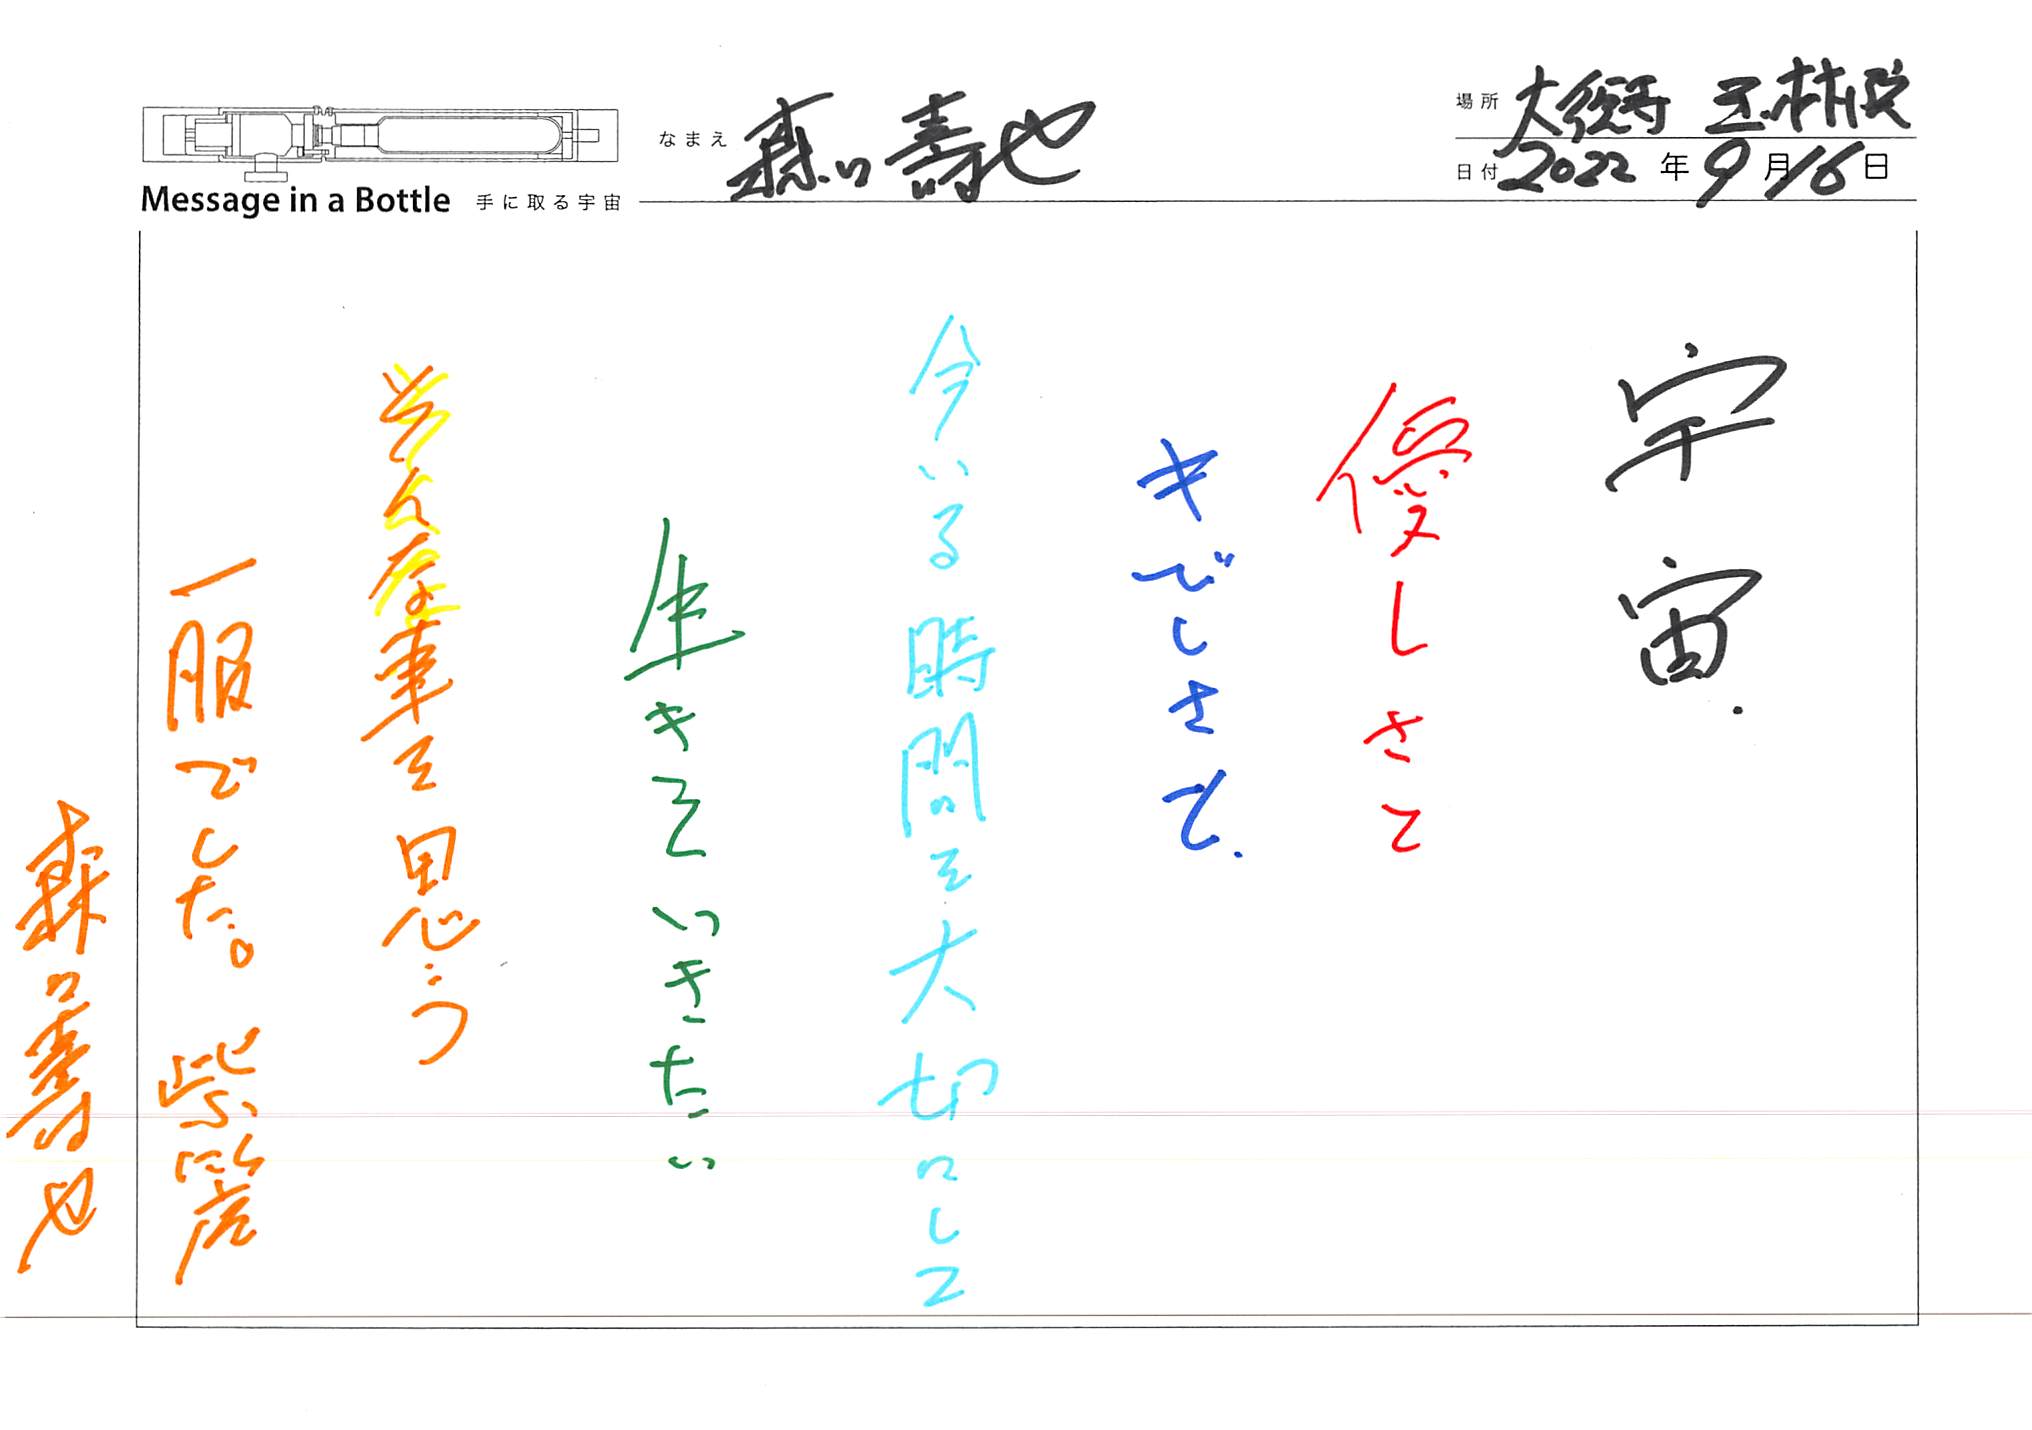 Message in a Bottle 手に取る宇宙
なまえ 森口壽也
場所 大徳寺 玉林院
日付 2022年9月16日
宇宙.
優しさと
キビしさと.
今いる時間を大切にして
生きていきたい
そんな事を思う
一服でした。
森口壽也